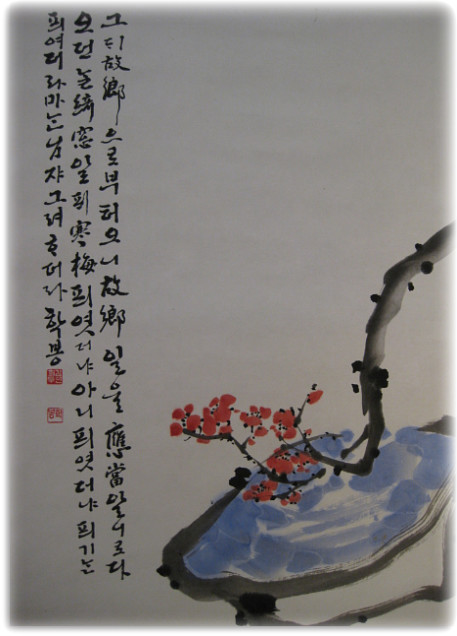 그ᄃᆡ故鄕으로부터오니故鄕일을應當알니로다
오던ᄂᆞᆯ綺窓알픠寒梅픠엿더냐아니픠엿더냐픠기는
픠여더라마는님쟈그려ᄒᆞ더라 학봉